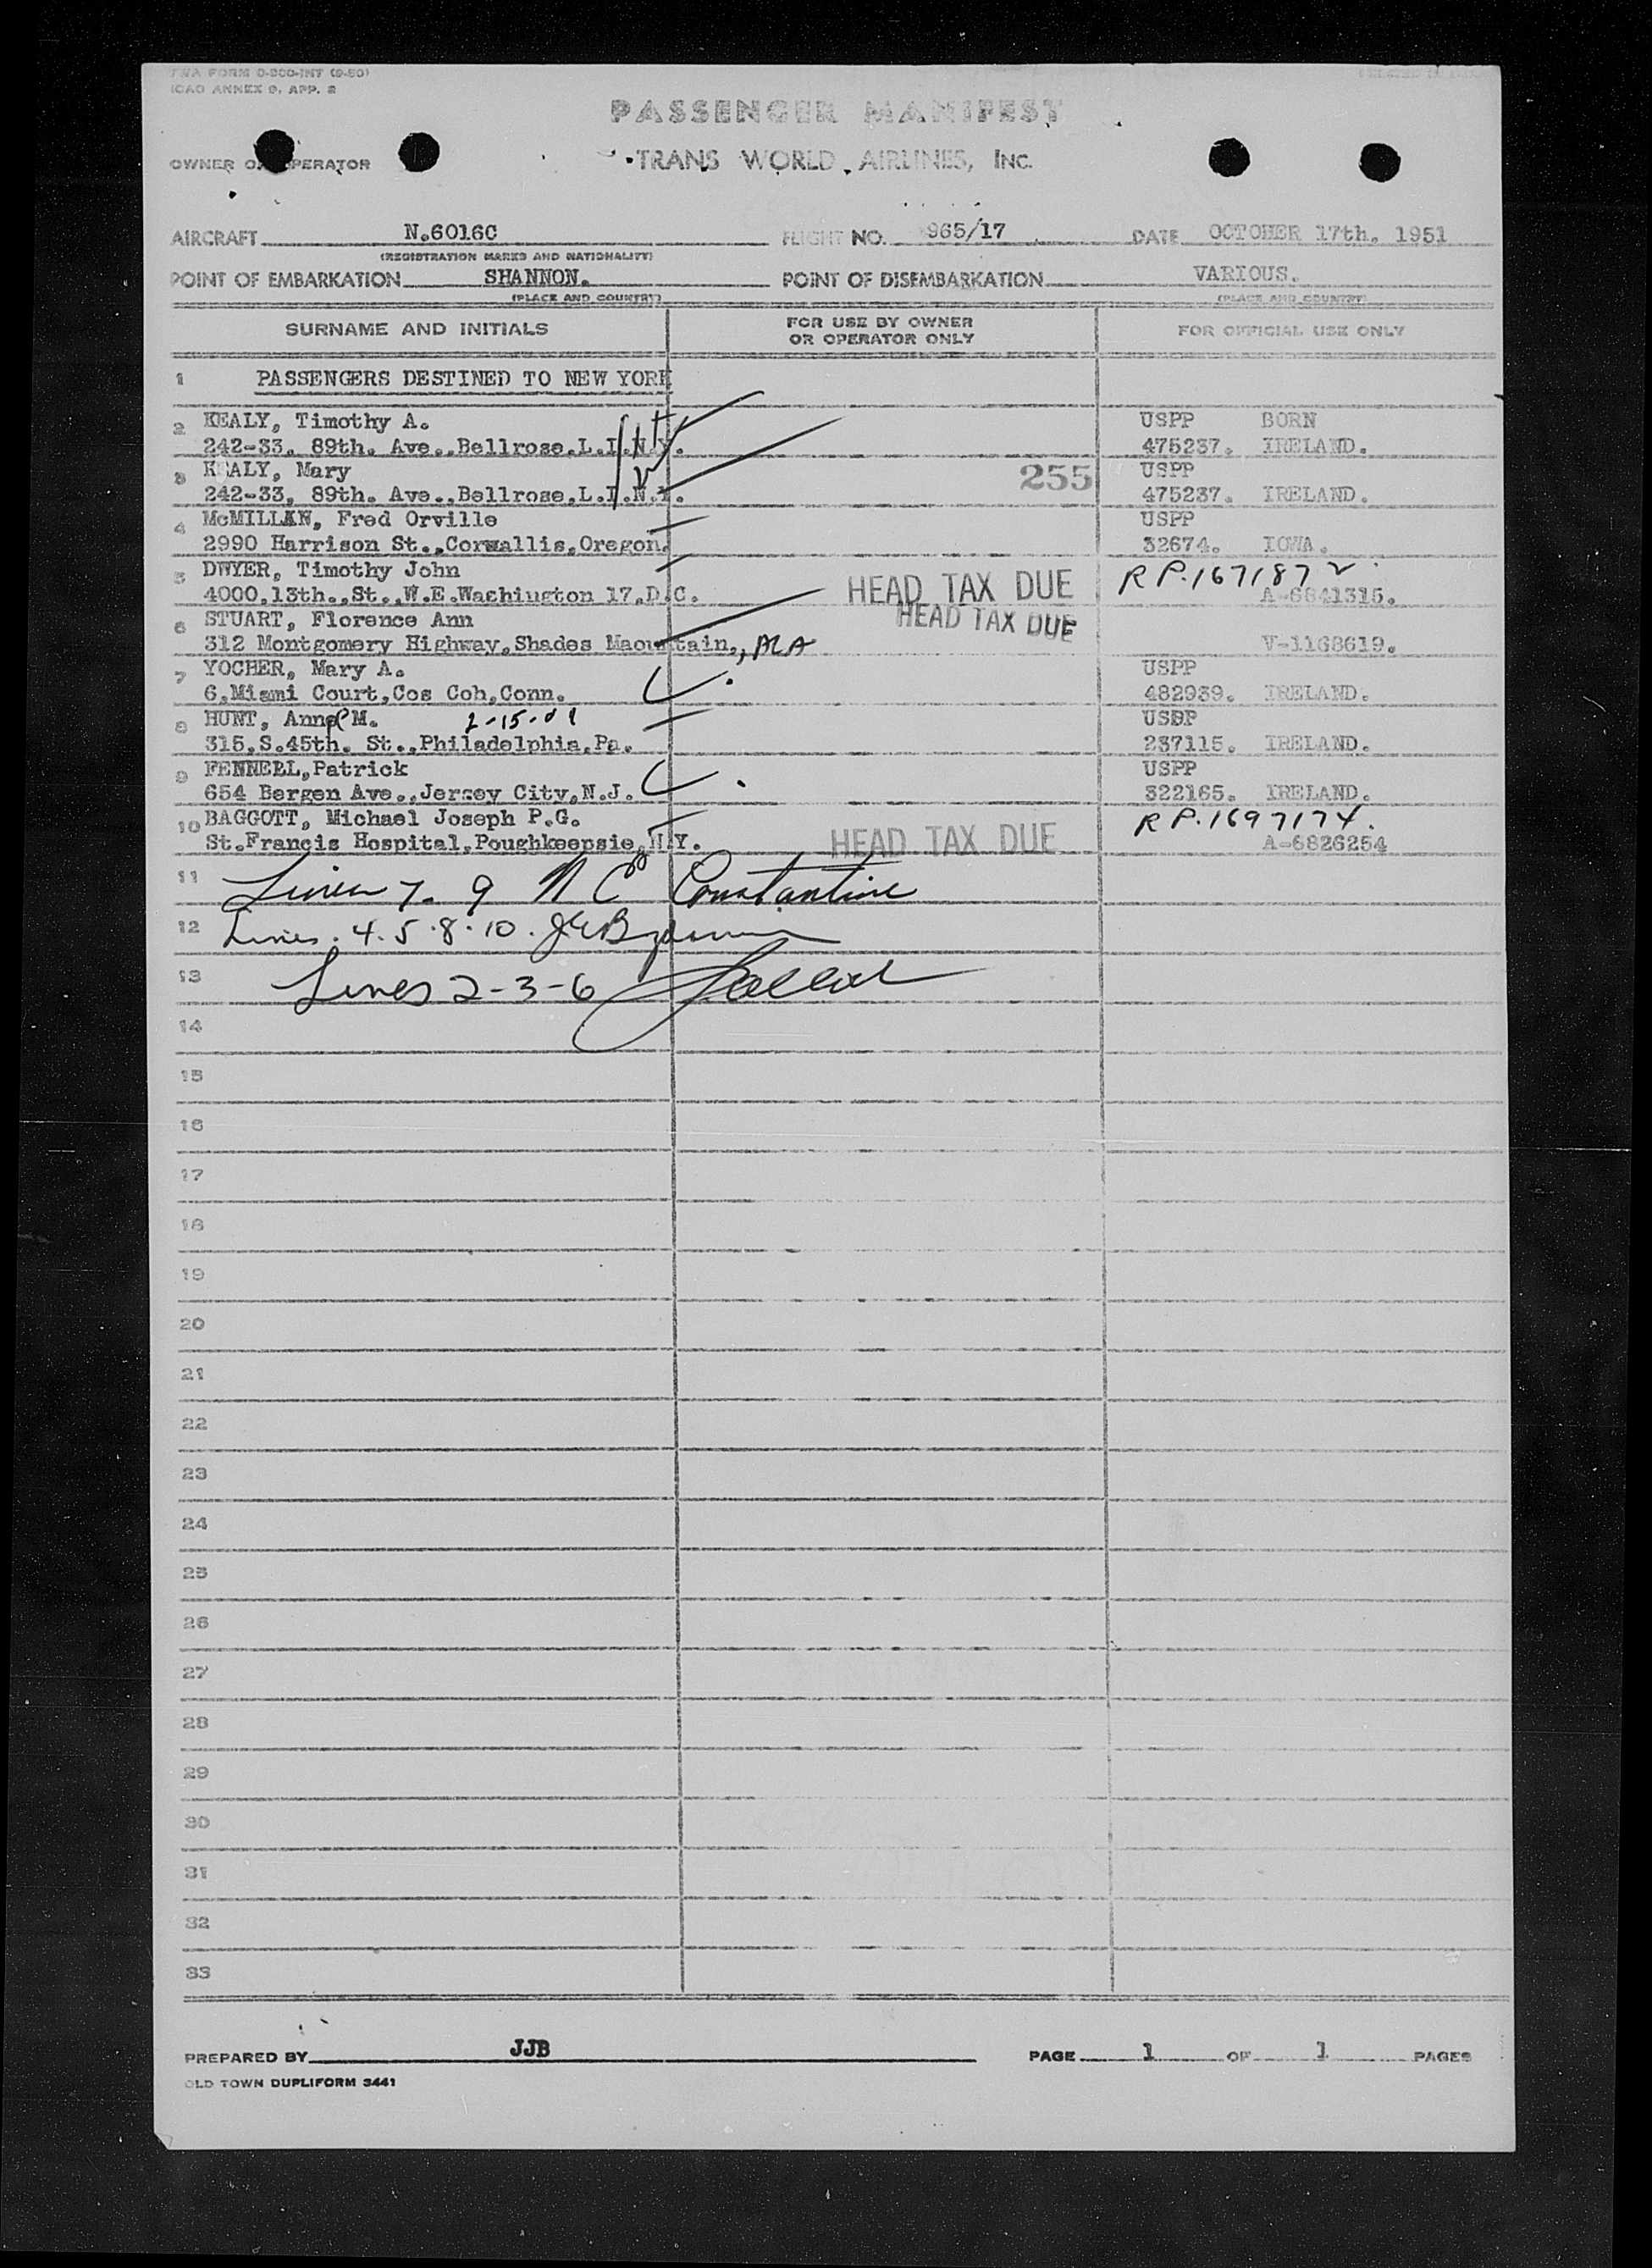 TWA FORM O-300-INT (9-50)
ICAO ANNEX 9, APP. 2
PASSENGER MANIFEST
OWNER OR OPERATOR TRANS WORLD AIRLINES, INC.
AIRCRAFT N.6016C FLIGHT NO. 965/17 DATE OCTOBER 17th. 1951
(REGISTRATION MARKS AND NATIONALITY)
POINT OF EMBARKATION SHANNON. POINT OF DISEMBARKATION VARIOUS.
(PLACE AND COUNTRY) (PLACE AND COUNTRY)
SURNAME AND INITIALS FOR USE BY OWNER OR OPERATOR ONLY FOR OFFICIAL USE ONLY
1 PASSENGERS DESTINED TO NEW YORK
2 KEALY, Timothy A. USPP BORN
242-33. 89th. Ave.,Bellrose,L.I.N.Y. 475237. IRELAND.
3 KEALY, Mary 255 USPP
242-33, 89th. Ave.,Bellrose,L.I.N.Y. 475237. IRELAND.
4 McMILLAN, Fred Orville USPP
2990 Harrison St.,Corwallis,Oregon. 32674. IOWA.
5 DWYER, Timothy John HEAD TAX DUE R P.1671872.
4000,13th.,St.,W.E.Washington 17,D.C. A-6841315.
6 STUART, Florence Ann HEAD TAX DUE
312 Montgomery Highway,Shades Maountain., ALA V-1168619.
7 YOCHER, Mary A. USPP
6,Miami Court,Cos Coh,Conn. 482939. IRELAND.
8 HUNT, Anne M. 2-15-01 USPP
315,S.45th. St.,Philadelphia,Pa. 237115. IRELAND.
9 FENNELL,Patrick USPP
654 Bergen Ave.,Jersey City,N.J. 322165. IRELAND.
10 BAGGOTT, Michael Joseph P.G. R P.1697174.
St.Francis Hospital,Poughkeepsie,N.Y. HEAD TAX DUE A-6826254
11 Lines 7. 9 N C Constantine
12 Lines. 4.5.8.10.
13 Lines 2-3-6
14
15
16
17
18
19
20
21
22
23
24
25
26
27
28
29
30
31
32
33
PREPARED BY JJB PAGE 1 OF 1 PAGES
OLD TOWN DUPLIFORM 3441